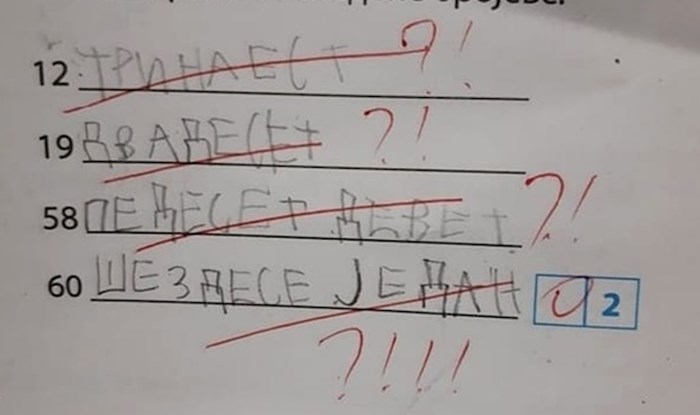 12 ТРИНАЕСТ ?!
19 ДВАДЕСЕТ ?!
58 ПЕДЕСЕТ ДЕВЕТ ?!
60 ШЕЗДЕСЕ ЈЕДАН 0 2
?!!!